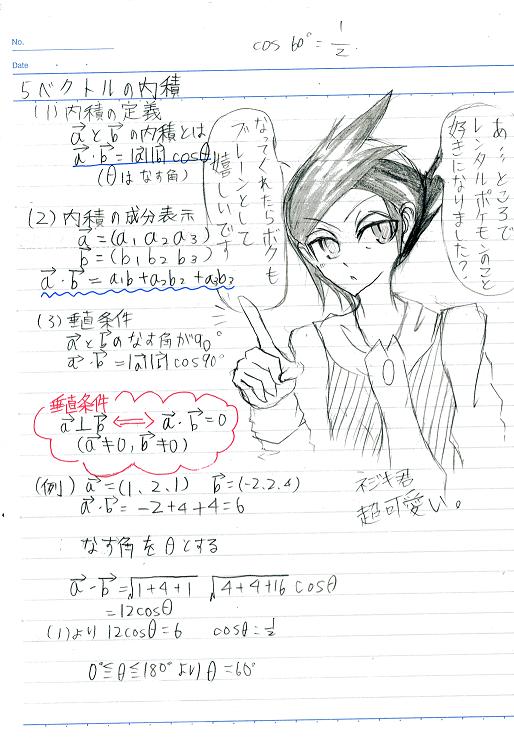 cos 60° = 1/2.
No.
Date
5 ベクトルの内積
(1) 内積の定義
a→とb→の内積とは
a→・b→ = |a→||b→| cosθ
(θは なす角)
(2) 内積の成分表示
a→ = (a₁ a₂ a₃)
b→ = (b₁ b₂ b₃)
a→・b→ = a₁b + a₂b₂ + a₃b₂
(3) 垂直条件
a→とb→のなす角が90°
a→・b→ = |a→||b→| cos90°
垂直条件
a→⊥b→ ⟺ a→・b→ = 0
(a→≠0, b→≠0)
(例) a→ = (1, 2, 1) b→ = (-2, 2, 4)
a→・b→ = -2+4+4 = 6
なす角をθとする
a→・b→ = √1+4+1 √4+4+16 cosθ
= 12cosθ
(1)より 12cosθ = 6 cosθ = 1/2
0°≦θ≦180°より θ = 60°
あ、ところで
レンタルポケモンのこと
好きになりました?
なってくれたらボクも
ブレーンとして
嬉しいです
ネジキ君
超可愛い。